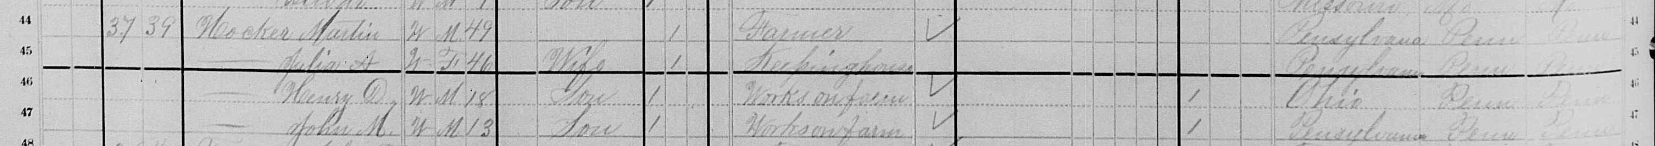 W M Son 1 Missouri
44 37 39 Hocker Martin W M 49 1 Farmer Pensylvana Penn Penn 44
45 — Julia A W F 46 Wife 1 Keepinghouse Pensylvana Penn Penn 45
46 — Henry D. W M 18 Son 1 Works on farm 1 Ohio Penn Penn 46
47 — John M. W M 13 Son 1 Works on farm 1 Pensylvana Penn Penn 47
48